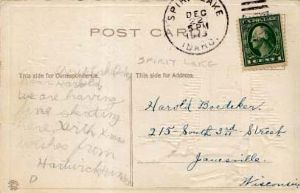 SPIRIT LAKE
DEC
22
PM
IDAHO.
POST CARD
SPIRIT LAKE
This side for Correspondence.
This side for Address.
Harold
we are having
fine skating
here, with Xmas
wishes from
Harold Boedeker.
215- South 3rd Street
Janesville.
Wisconsin
1 CENT 1